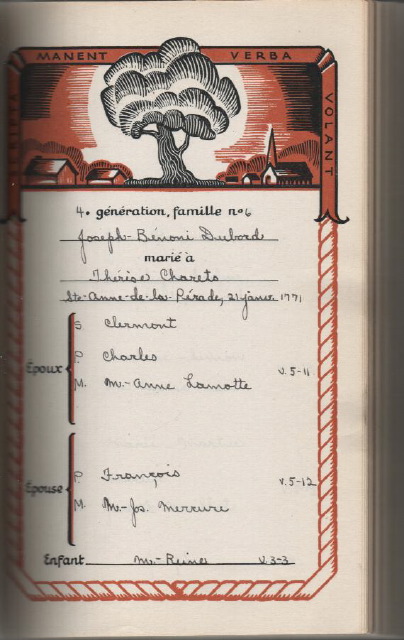 MANENT VERBA
VOLANT
4. génération, famille nº 6
Joseph-Bénoni Dubord
marié à
Thérèse Charets
Ste-Anne-de-la-Pérade, 21 janvr. 1771
S. Clermont
Époux P. Charles v. 5-11
M. M.-Anne Lamotte
Épouse P. François v. 5-12
M. M.-Jos. Mercure
Enfant M.-Reine v. 3-3